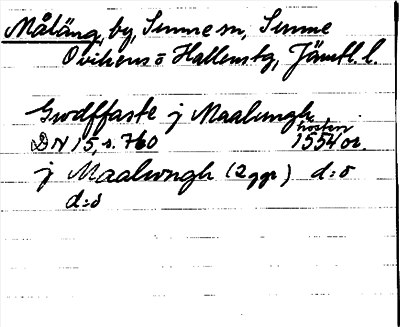 Målång, by, Sunne sn, Sunne
Ovikens o Hallens tg, Jämtl. l.
Gudffaste j Maalungh,
hösten
DN 15, s. 760 1554 or.
j Maalwngh (2 ggr) d:o
d:o